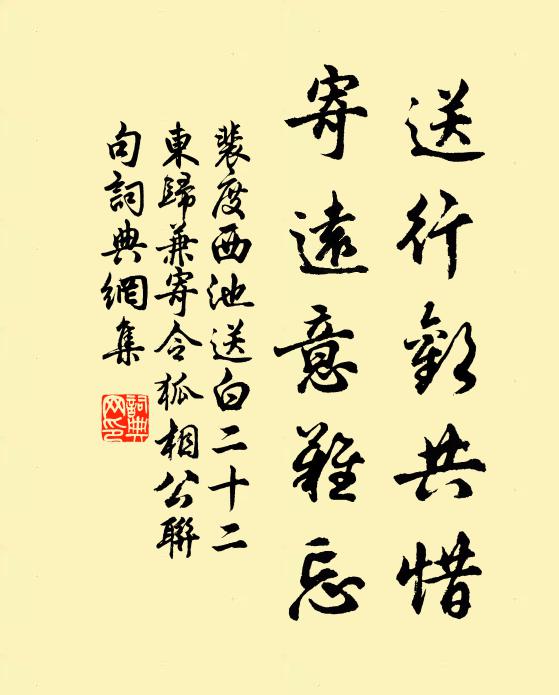 送行歡共惜
寄遠意難忘
裴度西池送白二十二
東歸兼寄令狐相公聯
句詞典網集
詞典
网印